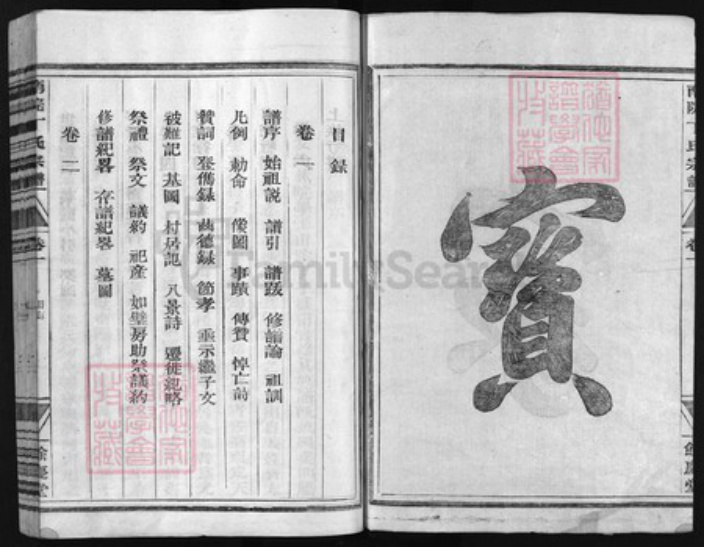 寶
目錄
卷一
譜序 始祖說 譜引 譜跋 修譜論 祖訓
凡例 勅命 像圖 事蹟 傳贊 悼亡詩
贊詞 登儁錄 齒德錄 節孝 垂示繼子文
被難記 基圖 村居記 八景詩 遷徙紀略
祭禮 祭文 議約 祀產 如璧房助祭議約
修譜紀畧 存譜紀畧 墓圖
卷二
丁氏宗譜
卷一
餘慶堂
FamilySearch